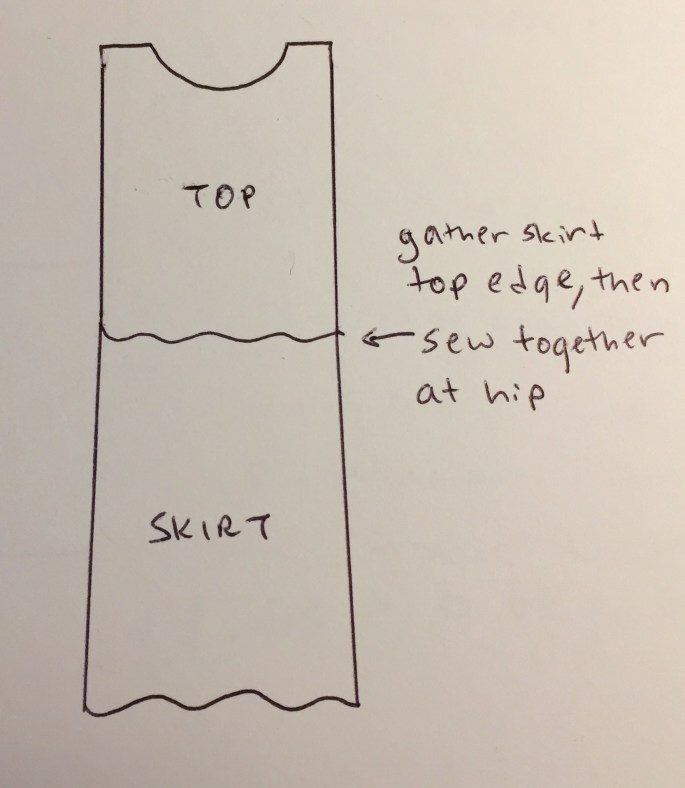 TOP
gather skirt
top edge, then
sew together
at hip
SKIRT